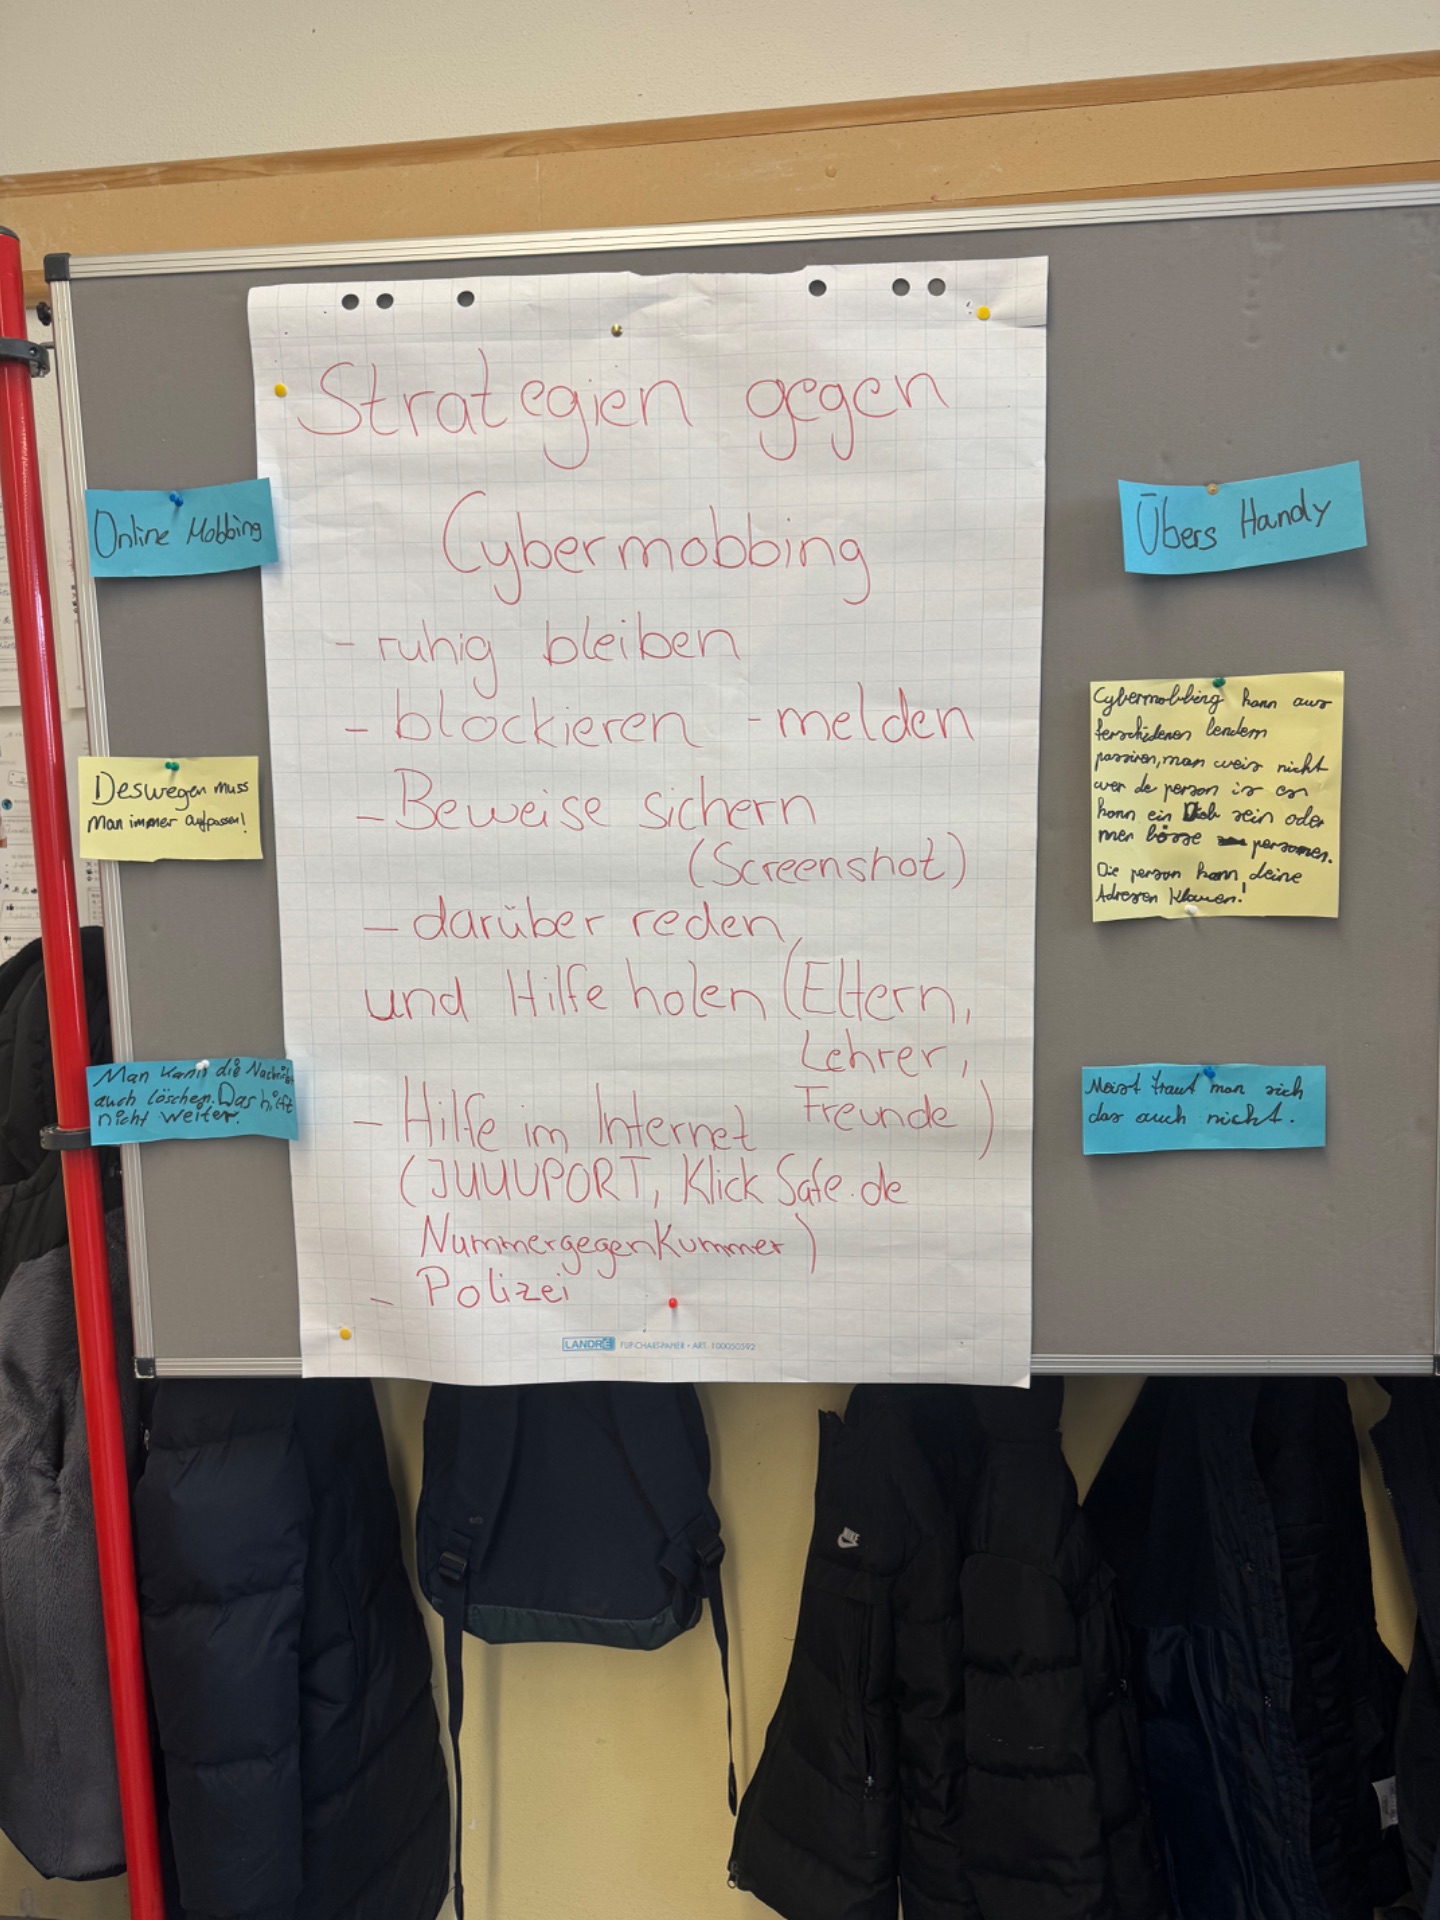 Strategien gegen
Cybermobbing
- ruhig bleiben
- blockieren - melden
- Beweise sichern
(Screenshot)
- darüber reden,
und Hilfe holen (Eltern,
Lehrer,
Freunde)
- Hilfe im Internet
(JUUUPORT, Klick Safe.de
NummergegenKummer)
- Polizei
LANDRÉ FLIP-CHART-PAPIER • ART. 100050592
Online Mobbing
Deswegen muss
Man immer aufpassen!
Man kann die Nachricht
auch löschen. Das hilft
nicht weiter.
Übers Handy
Cybermobbing kann aus
ferschidenen lendern
passiren, man weis nicht
wer de person is es
kann ein Dieb sein oder
mer bösse personen.
Die person kann deine
Adresen klauen!
Meist traut man sich
das auch nicht.
NIKE